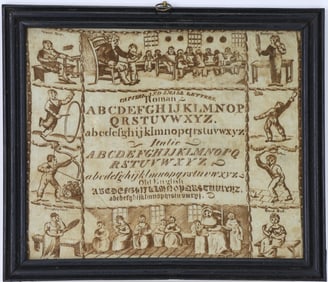 CAPITAL AND SMALL LETTERS.
Roman
ABCDEFGHIJKLMNOP
QRSTUVWXYZ.
abcdefghijklmnopqrstuvwxyz
Italic
ABCDEFGHIJKLMNOPQ
RSTUVWXYZ.&
abcdefghijklmnopqrstuvwxyz
Old English
ABCDEFGHIJKLMNOPQRSTUVWXYZ.
abcdefghijklmnopqrstuvwxyz.